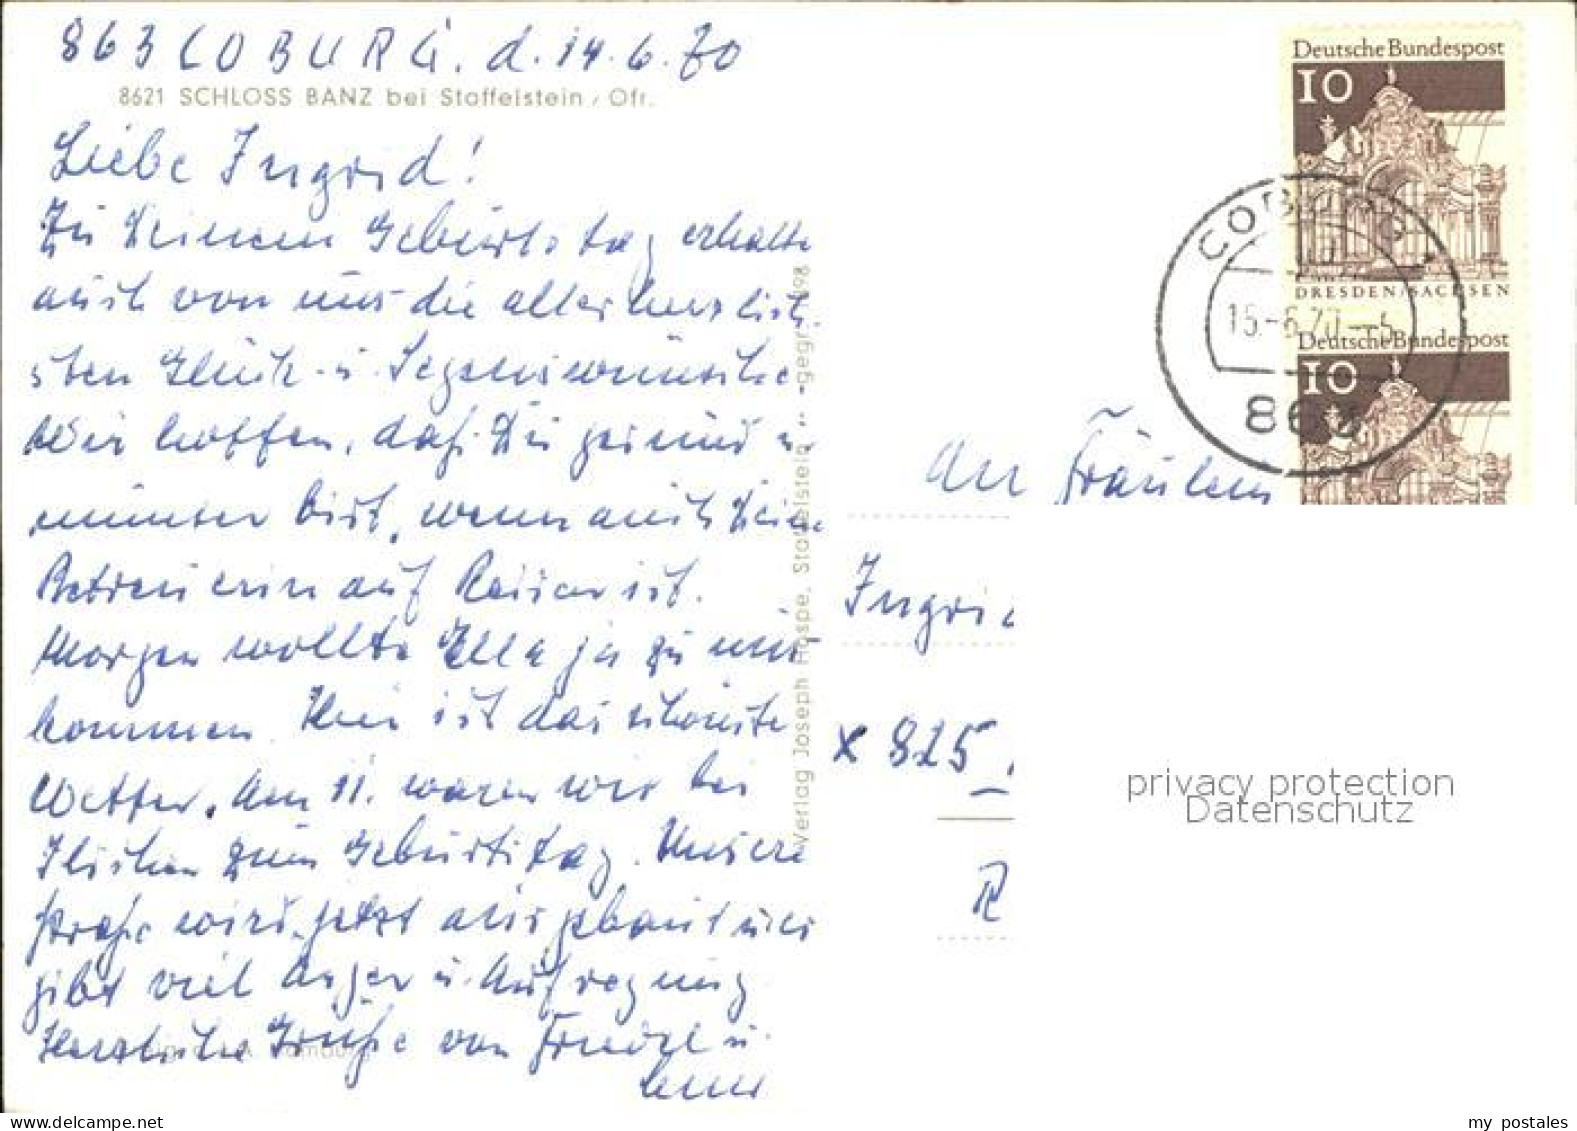 863 COBURG. d. 14.6.70
8621 SCHLOSS BANZ bei Staffelstein / Ofr.
Liebe Ingrid!
Zu Deinem Geburtstag erhalte
auch von uns die allerherzlich-
sten Glück- u. Segenswünsche
Wir hoffen, daß Du gesund u.
munter bist, wenn auch Deine
Betreuerin auf Reisen ist.
Morgen wollte Ella ja zu uns
kommen. Hier ist das schönste
Wetter. Am 11. waren wir bei
zum Geburtstag. Unsere
Straße wird jetzt ausgebaut u. es
gibt viel Ärger u. Aufregung
Herzliche Grüße von Friedel u.
Verlag Joseph Hospe, Staffelstein - gegr. 1898
Deutsche Bundespost
10
DRESDEN/SACHSEN
Deutsche Bundespost
10
COBURG 1
15.-6.70.-5
863
An Fräulein
Ingrid
x 825
R
privacy protection
Datenschutz
www.ansichtskarten-center.de
my postales